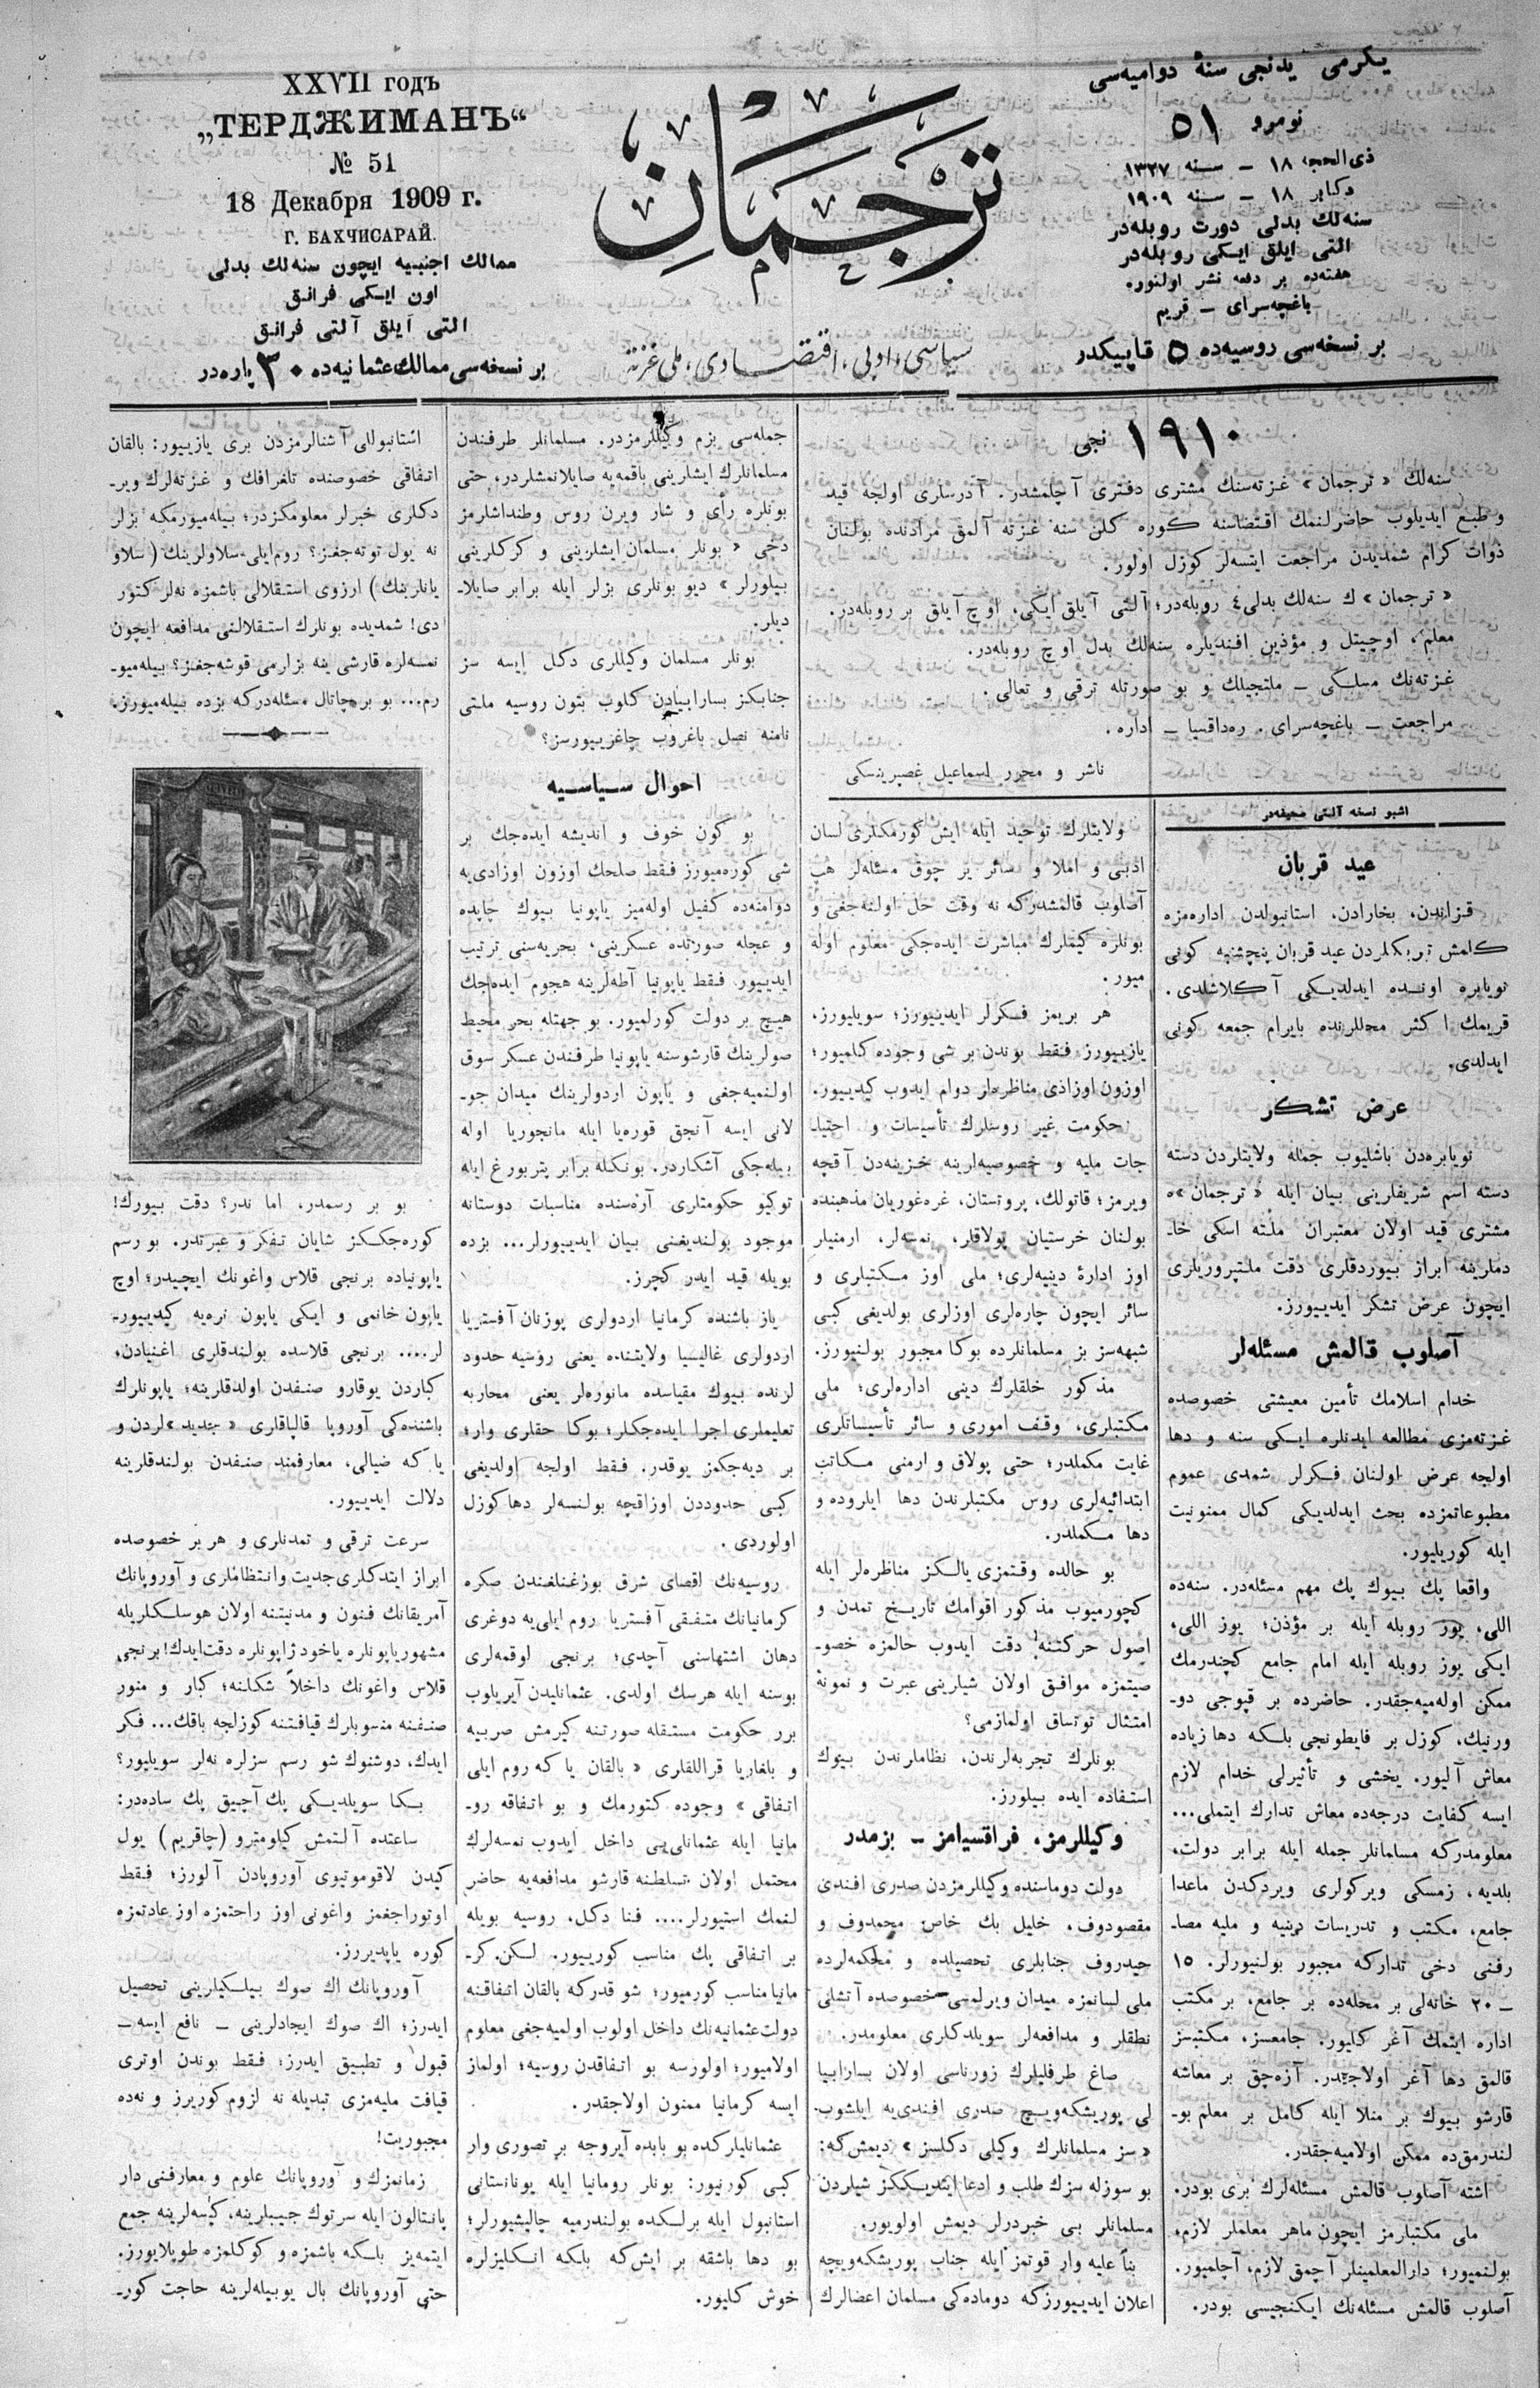 XXVII годъ
„ТЕРДЖИМАНЪ“
№ 51
18 Декабря 1909 г.
Г. БАХЧИСАРАЙ.
ممالك اجنبیه ایچون سنه‌لك بدلی
اون ایكی فرانق
التی آیلق آلتی فرانق
بر نسخه‌سی ممالك عثمانیه‌ده ٣٠ پاره‌در
ترجمان
سیاسی، ادبی، اقتصادی، ملی غزته
یكرمی یدنجی سنهٔ دوامیه‌سی
نومرو ٥١
ذی الحجه ١٨ – سنه ١٣٢٧
دكابر ١٨ – سنه ١٩٠٩
سنه‌لك بدلی دورت روبله‌در
التی ایلق ایكی روبله‌در
هفته‌ده بر دفعه نشر اولنور.
باغچه‌سرای – قریم
بر نسخه‌سی روسیه‌ده ٥ قاپیكدر
١٩١٠ نجی
سنه‌لك « ترجمان » غزته‌سنك مشتری دفتری آچلمشدر. آدرسلری اولجه قید
و طبع ایدیلوب حاضرلنمك اقتضاسنه كوره كلن سنه غزته آلمق مرادنده بولنان
ذوات كرام شمدیدن مراجعت ایتسه‌لر كوزل اولور.
« ترجمان » ك سنه‌لك بدلی ٤ روبله‌در؛ آلتی آیلق ایكی، اوچ آیلق بر روبله‌در.
معلم، اوچیتل و مؤذین افندیلره سنه‌لك بدل اوچ روبله‌در.
غزته‌نك مسلكی – ملتجیلك و بو صورتله ترقی و تعالی.
مراجعت – باغچه‌سرای. ره‌داقسیا – اداره.
ناشر و محرر اسماعیل غصپرینسكی
اشبو نسخه آلتی صحیفه‌در
عید قربان
قزاندن، بخارادن، استانبولدن اداره‌مزه
كلمش تبریكلردن عید قربان پنچشنبه كونی
نویابره اونده ایدلدیكی آكلاشلدی.
قریمك اكثر محللرنده بایرام جمعه كونی
ایدلدی.
عرض تشكر
نویابره‌دن باشلیوب جمله ولایتلردن دسته
دسته اسم شریفلرینی بیان ایله « ترجمان »ه
مشتری قید اولان معتبران ملته اسكی خا-
دملرینه ابراز بیوردقلری دقت ملتپروریلری
ایچون عرض تشكر ایدییورز.
آصلوب قالمش مسئله‌لر
خدام اسلامك تأمین معیشتی خصوصده
غزته‌مزی مطالعه ایدنلره ایكی سنه و دها
اولجه عرض اولنان فكرلر شمدی عموم
مطبوعاتمزده بحث ایدلدیكی كمال ممنونیت
ایله كوریلیور.
واقعا پك بیوك پك مهم مسئله‌در. سنه‌ده
اللی، یوز روبله ایله بر مؤذن؛ یوز اللی،
ایكی یوز روبله ایله امام جامع كچندرمك
ممكن اوله‌میه‌جقدر. حاضرده بر قپوجی دو-
ورنیك، كوزل بر قایطونجی بلكه دها زیاده
معاش آلیور. یخشی و تأثیرلی خدام لازم
ایسه كفایت درجه‌ده معاش تدارك ایتملی...
معلومدركه مسلمانلر جمله ایله برابر دولت،
بلدیه، زمسكی ویركولری ویردكدن ماعدا
جامع، مكتب و تدریسات دینیه و ملیه مصا-
رفنی دخی تداركه مجبور بولنیورلر. ١٥
– ٢٠ خانه‌لی بر محله‌ده بر جامع، بر مكتب
اداره ایتمك آغر كلیور. جامعسز، مكتبسز
قالمق دها آغر اولاجقدر. آزه‌جق بر معاشه
قارشو بیوك بر منلا ایله كامل بر معلم بو-
لندرمق‌ده ممكن اولامیه‌جقدر.
اشته آصلوب قالمش مسئله‌لرك بری بودر.
ملی مكتبلرمز ایچون ماهر معلملر لازم،
بولنمیور؛ دارالمعلمینلر آچمق لازم، آچلمیور.
آصلوب قالمش مسئله‌نك ایكنجیسی بودر.
ولایتلرك توحید ایله ایش كورمكلری لسان
ادبی و املا و سائر یر چوق مسئله‌لر هپ
آصلوب قالمشدركه نه وقت حل اولنه‌جغی و
بونلره كیملرك مباشرت ایده‌جكی معلوم اوله
میور.
هر بریمز فكرلر ایدییورز؛ سویلیورز،
یازییورز فقط بوندن بر شی وجوده كلمیور؛
اوزون اوزادی مناظره‌لر دوام ایدوب كیدییور.
حكومت غیر روسلرك تأسیسات و احتیا-
جات ملیه و خصوصیه‌لرینه خزینه‌دن آقچه
ویرمز؛ قاتولك، پروتستان، غره‌غوریان مذهبنده
بولنان خرستیان پولاقلر، نمسه‌لر، ارمنیلر
اوز ادارهٔ دینیه‌لری؛ ملی اوز مكتبلری و
سائر ایچون چاره‌لری اوزلری بولدیغی كبی
شبهه‌سز بز مسلمانلرده بوكا مجبور بولنیورز.
مذكور خلقلرك دینی اداره‌لری؛ ملی
مكتبلری، وقف اموری و سائر تأسیساتلری
غایت مكملدر؛ حتی پولاق و ارمنی مكاتب
ابتدائیه‌لری روس مكتبلرندن دها ایلروده و
دها مكملدر.
بو حالده وقتمزی یالكز مناظره‌لر ایله
كچورمیوب مذكور اقوامك تاریخ تمدن و
اصول حركتنه دقت ایدوب حالمزه خصو-
صیتمزه موافق اولان شیلرینی عبرت و نمونهٔ
امتثال توتساق اولمازمی؟
بونلرك تجربه‌لرندن، نظاملرندن بیوك
استفاده ایده بیلورز.
وكیللرمز، فراقسیامز – بزمدر
دولت دوماسنده وكیللرمزدن صدری افندی
مقصودوف، خلیل بك خاص محمدوف و
حیدروف جنابلری تحصیلده و محكمه‌لرده
ملی لسانمزه میدان ویرلمسی خصوصده آتشلی
نطقلر و مدافعه‌لر سویلدكلری معلومدر.
صاغ طرفلیلرك زورناسی اولان بسارابیا
لی پوریشكه‌ویچ صدری افندی‌یه ایلشوب
« سز مسلمانلرك وكیلی دكلسز » دیمش‌كه:
بو سوزله سزك طلب و ادعا ایتدیككز شیلردن
مسلمانلر بی خبردرلر دیمش اولویور.
بناً علیه وار قوتمز ایله جناب پوریشكه‌ویچه
اعلان ایدییورزكه دوماده‌كی مسلمان اعضالرك
جمله‌سی بزم وكیللرمزدر. مسلمانلر طرفندن
مسلمانلرك ایشلرینی باقمه‌یه صایلانمشلردر، حتی
بونلره رأی و شار ویرن روس وطنداشلرمز
دخی « بونلر مسلمان ایشلرینی و كركلرینی
بیلورلر » دیو بونلری بزلر ایله برابر صایلا-
دیلر.
بونلر مسلمان وكیللری دكل ایسه سز
جنابكز بسارابیادن كلوب بتون روسیه ملتی
نامنه نصل باغروب چاغرییورسز؟
احوال سیاسیه
بو كون خوف و اندیشه ایده‌جك بر
شی كوره‌میورز فقط صلحك اوزون اوزادی‌یه
دوامنه‌ده كفیل اوله‌میز یاپونیا بیوك چاپده
و عجله صورتده عسكرینی، بحریه‌سنی ترتیب
ایدییور. فقط یاپونیا آطه‌لرینه هجوم ایده‌جك
هیچ بر دولت كورلمیور. بو جهتله بحر محیط
صولرینك قارشوسنه یاپونیا طرفندن عسكر سوق
اولنمیه‌جغی و یاپون اردولرینك میدان جو-
لانی ایسه آنجق قوره‌یا ایله مانجوریا اوله
بیله‌جكی آشكاردر. بونكله برابر پتربورغ ایله
توكیو حكومتلری آره‌سنده مناسبات دوستانه
موجود بولندیغنی بیان ایدییورلر... بزده
بویله قید ایدر كچرز.
یاز باشنده كرمانیا اردولری پوزنان آفستریا
اردولری غالیسیا ولایتنده یعنی روسیه حدود
لرنده بیوك مقیاسده مانوره‌لر یعنی محاربه
تعلیملری اجرا ایده‌جكلر؛ بوكا حقلری وار؛
بر دیه‌جكمز یوقدر. فقط اولجه اولدیغی
كبی حدوددن اوزاقچه بولنسه‌لر دها كوزل
اولوردی.
روسیه‌نك اقصای شرق بوزغنلغندن صكره
كرمانیانك متفقی آفستریا روم ایلی‌یه دوغری
دهان اشتهاسنی آچدی؛ برنجی لوقمه‌لری
بوسنه ایله هرسك اولدی. عثمانلیدن آیریلوب
برر حكومت مستقله صورتنه كیرمش صربیه
و بلغاریا قراللقلری « بالقان یا كه روم ایلی
اتفاقی » وجوده كتورمك و بو اتفاقه رو-
مانیا ایله عثمانلی‌یی داخل ایدوب نمسه‌لرك
محتمل اولان تسلطنه قارشو مدافعه‌یه حاضر
لنمك استیورلر.... فنا دكل، روسیه بویله
بر اتفاقی پك مناسب كورییور. لكن كر-
مانیا مناسب كورمیور؛ شو قدركه بالقان اتفاقنه
دولت عثمانیه‌نك داخل اولوب اولمیه‌جغی معلوم
اولامیور؛ اولورسه بو اتفاقدن روسیه؛ اولماز
ایسه كرمانیا ممنون اولاجقدر.
عثمانلیلركده بو بابده آیروجه بر تصوری وار
كبی كورنیور: بونلر رومانیا ایله یونانستانی
استانبول ایله برلكده بولندرمیه چالیشیورلر؛
بو دها باشقه بر ایش‌كه بلكه انكلیزلره
خوش كلیور.
اشتانبوللی آشنالرمزدن بری یازییور: بالقان
اتفاقی خصوصنده تلغرافك و غزته‌لرك ویر-
دكلری خبرلر معلومكزدر؛ بیله‌میورمكه بزلر
نه یول توته‌جغز؟ روم‌ایلی سلاولرینك (سلاو
یانلرینك) ارزوی استقلالی باشمزه نه‌لر كتور
دی! شمدیده بونلرك استقلالنی مدافعه ایچون
نمسه‌لره قارشی ینه بزلرمی قوشه‌جغز؟ بیله‌میو-
رم... بو بر چاتال مسئله‌دركه بزده بیله‌میورز.
بو بر رسمدر، اما ندر؟ دقت بیورك!
كوره‌جككز شایان تفكر و عبرتدر. بو رسم
یاپونیاده برنجی قلاس واغونك ایچیدر؛ اوچ
یاپون خانمی و ایكی یاپون نره‌یه كیدییور-
لر.... برنجی قلاسده بولندقلری اغنیادن،
كباردن یوقارو صنفدن اولدقلرینه؛ یاپونلرك
باشنده‌كی آوروپا قالپاقلری « جدید »لردن و
یا كه ضیالی، معارفمند صنفدن بولندقلرینه
دلالت ایدییور.
سرعت ترقی و تمدنلری و هر بر خصوصده
ابراز ایتدكلری جدیت وانتظاملری و آوروپانك
آمریقانك فنون و مدنیتنه اولان هوسلكلریله
مشهور یاپونلره یاخود ژاپونلره دقت‌ایدك! برنجی
قلاس واغونك داخلاً شكلنه؛ كبار و منور
صنفنه منسوبلرك قیافتنه كوزلجه باقك... فكر
ایدك، دوشنوك شو رسم سزلره نه‌لر سویلیور؟
بكا سویلدیكی پك آچیق پك ساده‌در:
ساعتده آلتمش كیلومترو (چاقریم) یول
كیدن لاقوموتیوی آوروپادن آلورز؛ فقط
اوتوراجغمز واغونی اوز راحتمزه اوز عادتمزه
كوره یاپدیررز.
آوروپانك اك صوك بیلكیلرینی تحصیل
ایدرز؛ اك صوك ایجادلرینی – نافع ایسه –
قبول و تطبیق ایدرز؛ فقط بوندن اوتری
قیافت ملیه‌مزی تبدیله نه لزوم كوریرز و نه‌ده
مجبوریت!
زمانمزك و آوروپانك علوم و معارفنی دار
پانتالون ایله سرتوك جیبلرینه، كیسه‌لرینه جمع
ایتمه‌یز بلكه باشمزه و كوكلمزه طوپلایورز.
حتی آوروپانك بال یوبیله‌لرینه حاجت كور-